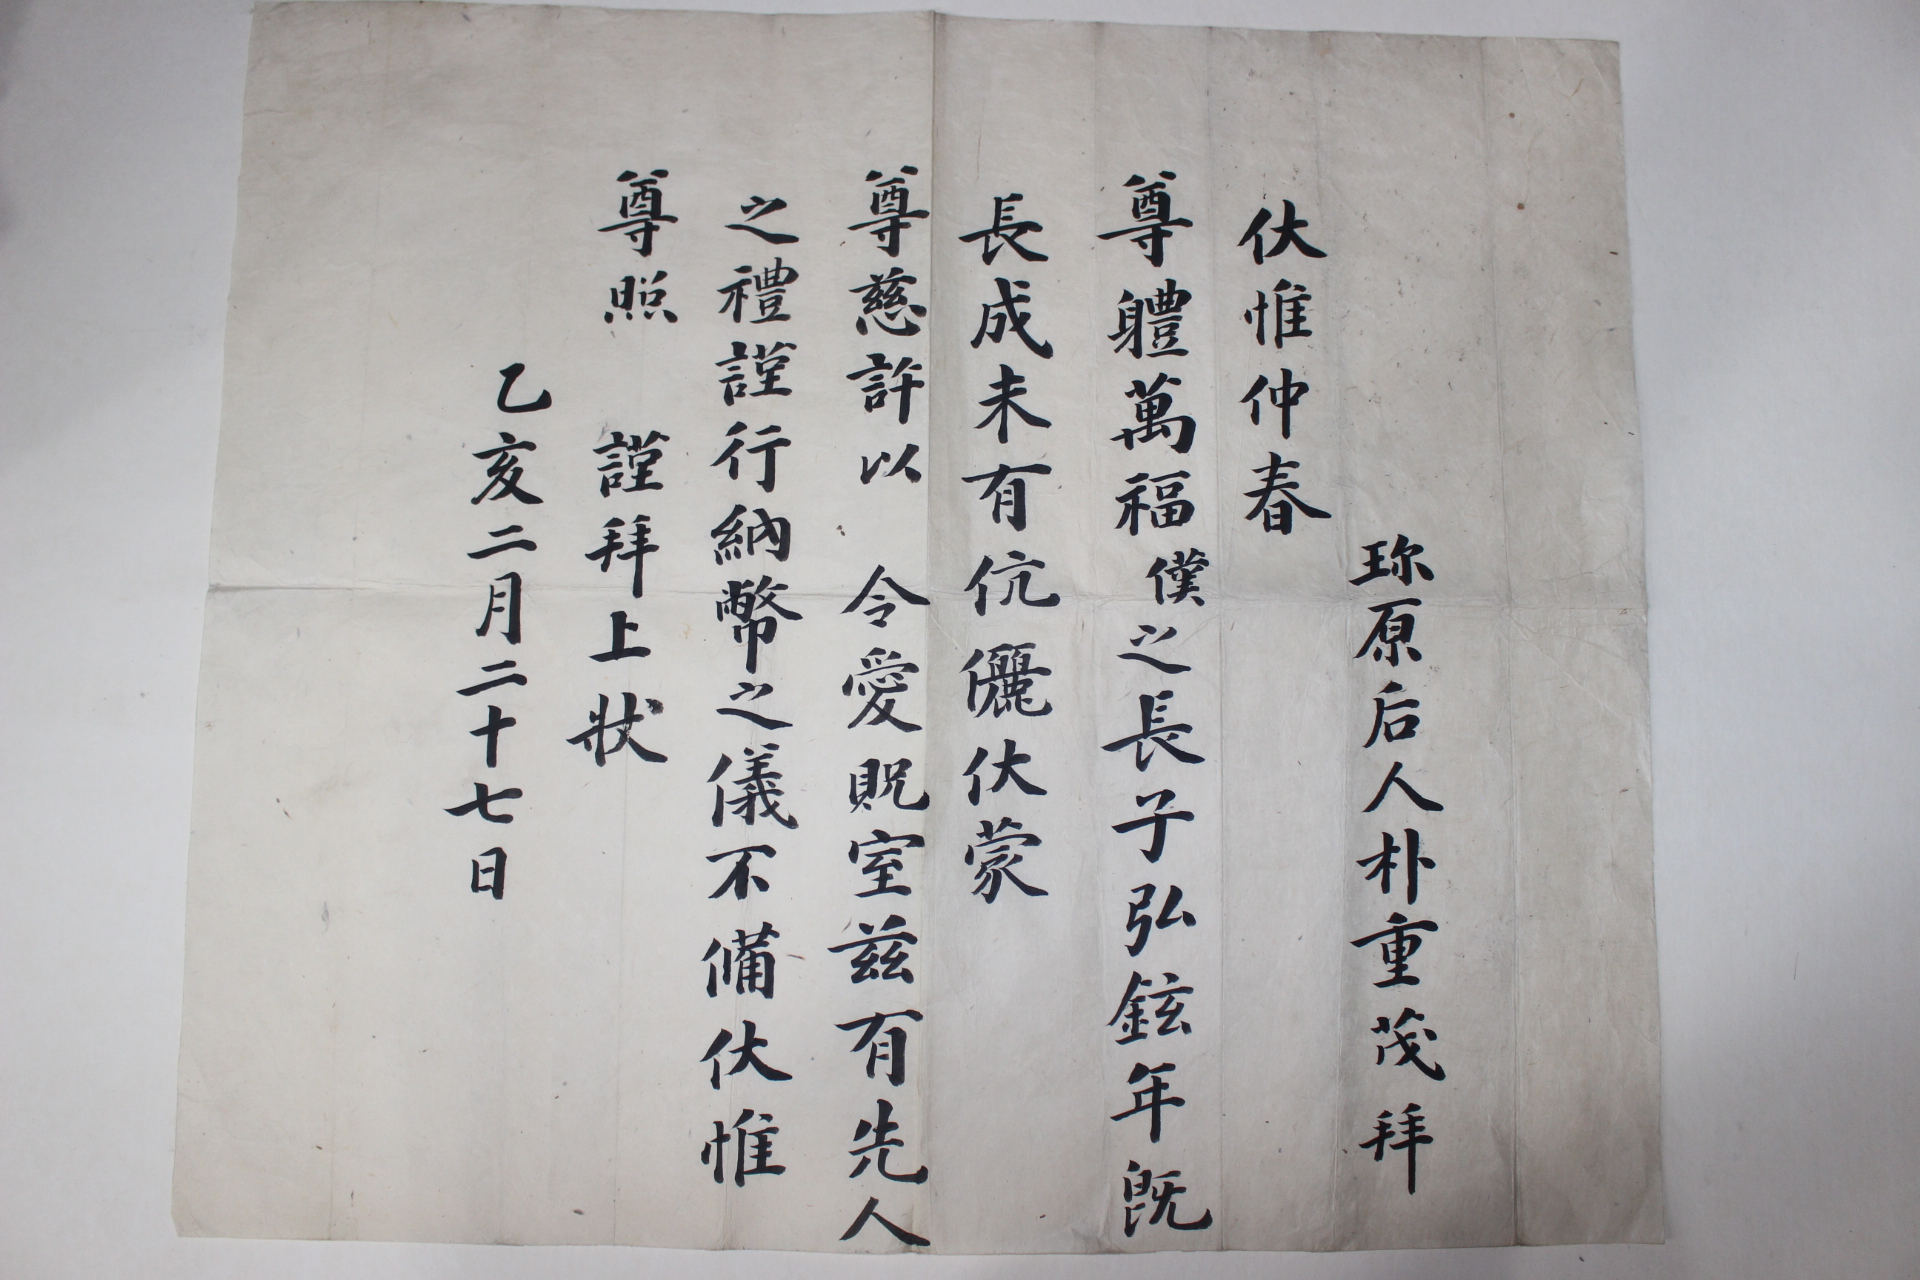 珎原后人朴重茂拜
伏惟仲春
尊軆萬福僕之長子弘鉉年旣
長成未有伉儷伏蒙
尊慈許以 令愛貺室玆有先人
之禮謹行納幣之儀不備伏惟
尊照 謹拜上狀
乙亥二月二十七日